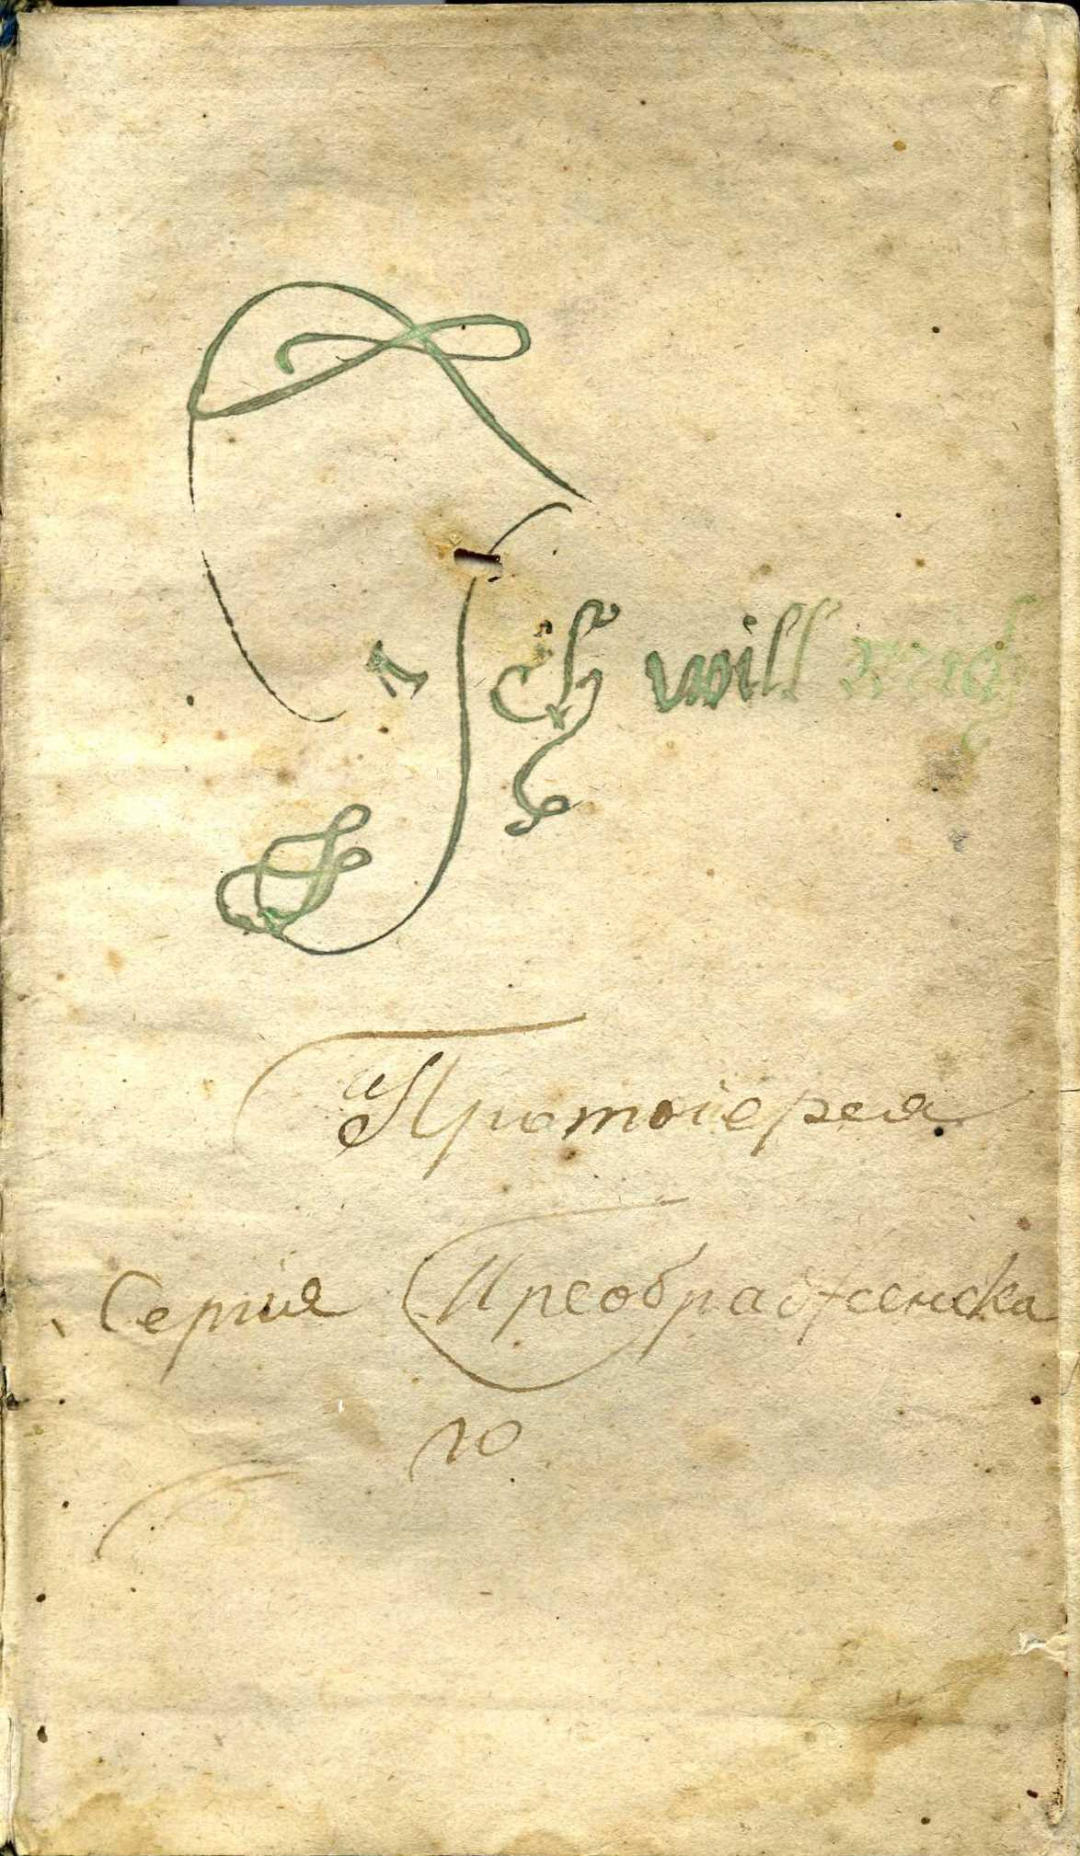 Ich will
Протоіерея
Сергія Преображенска
го